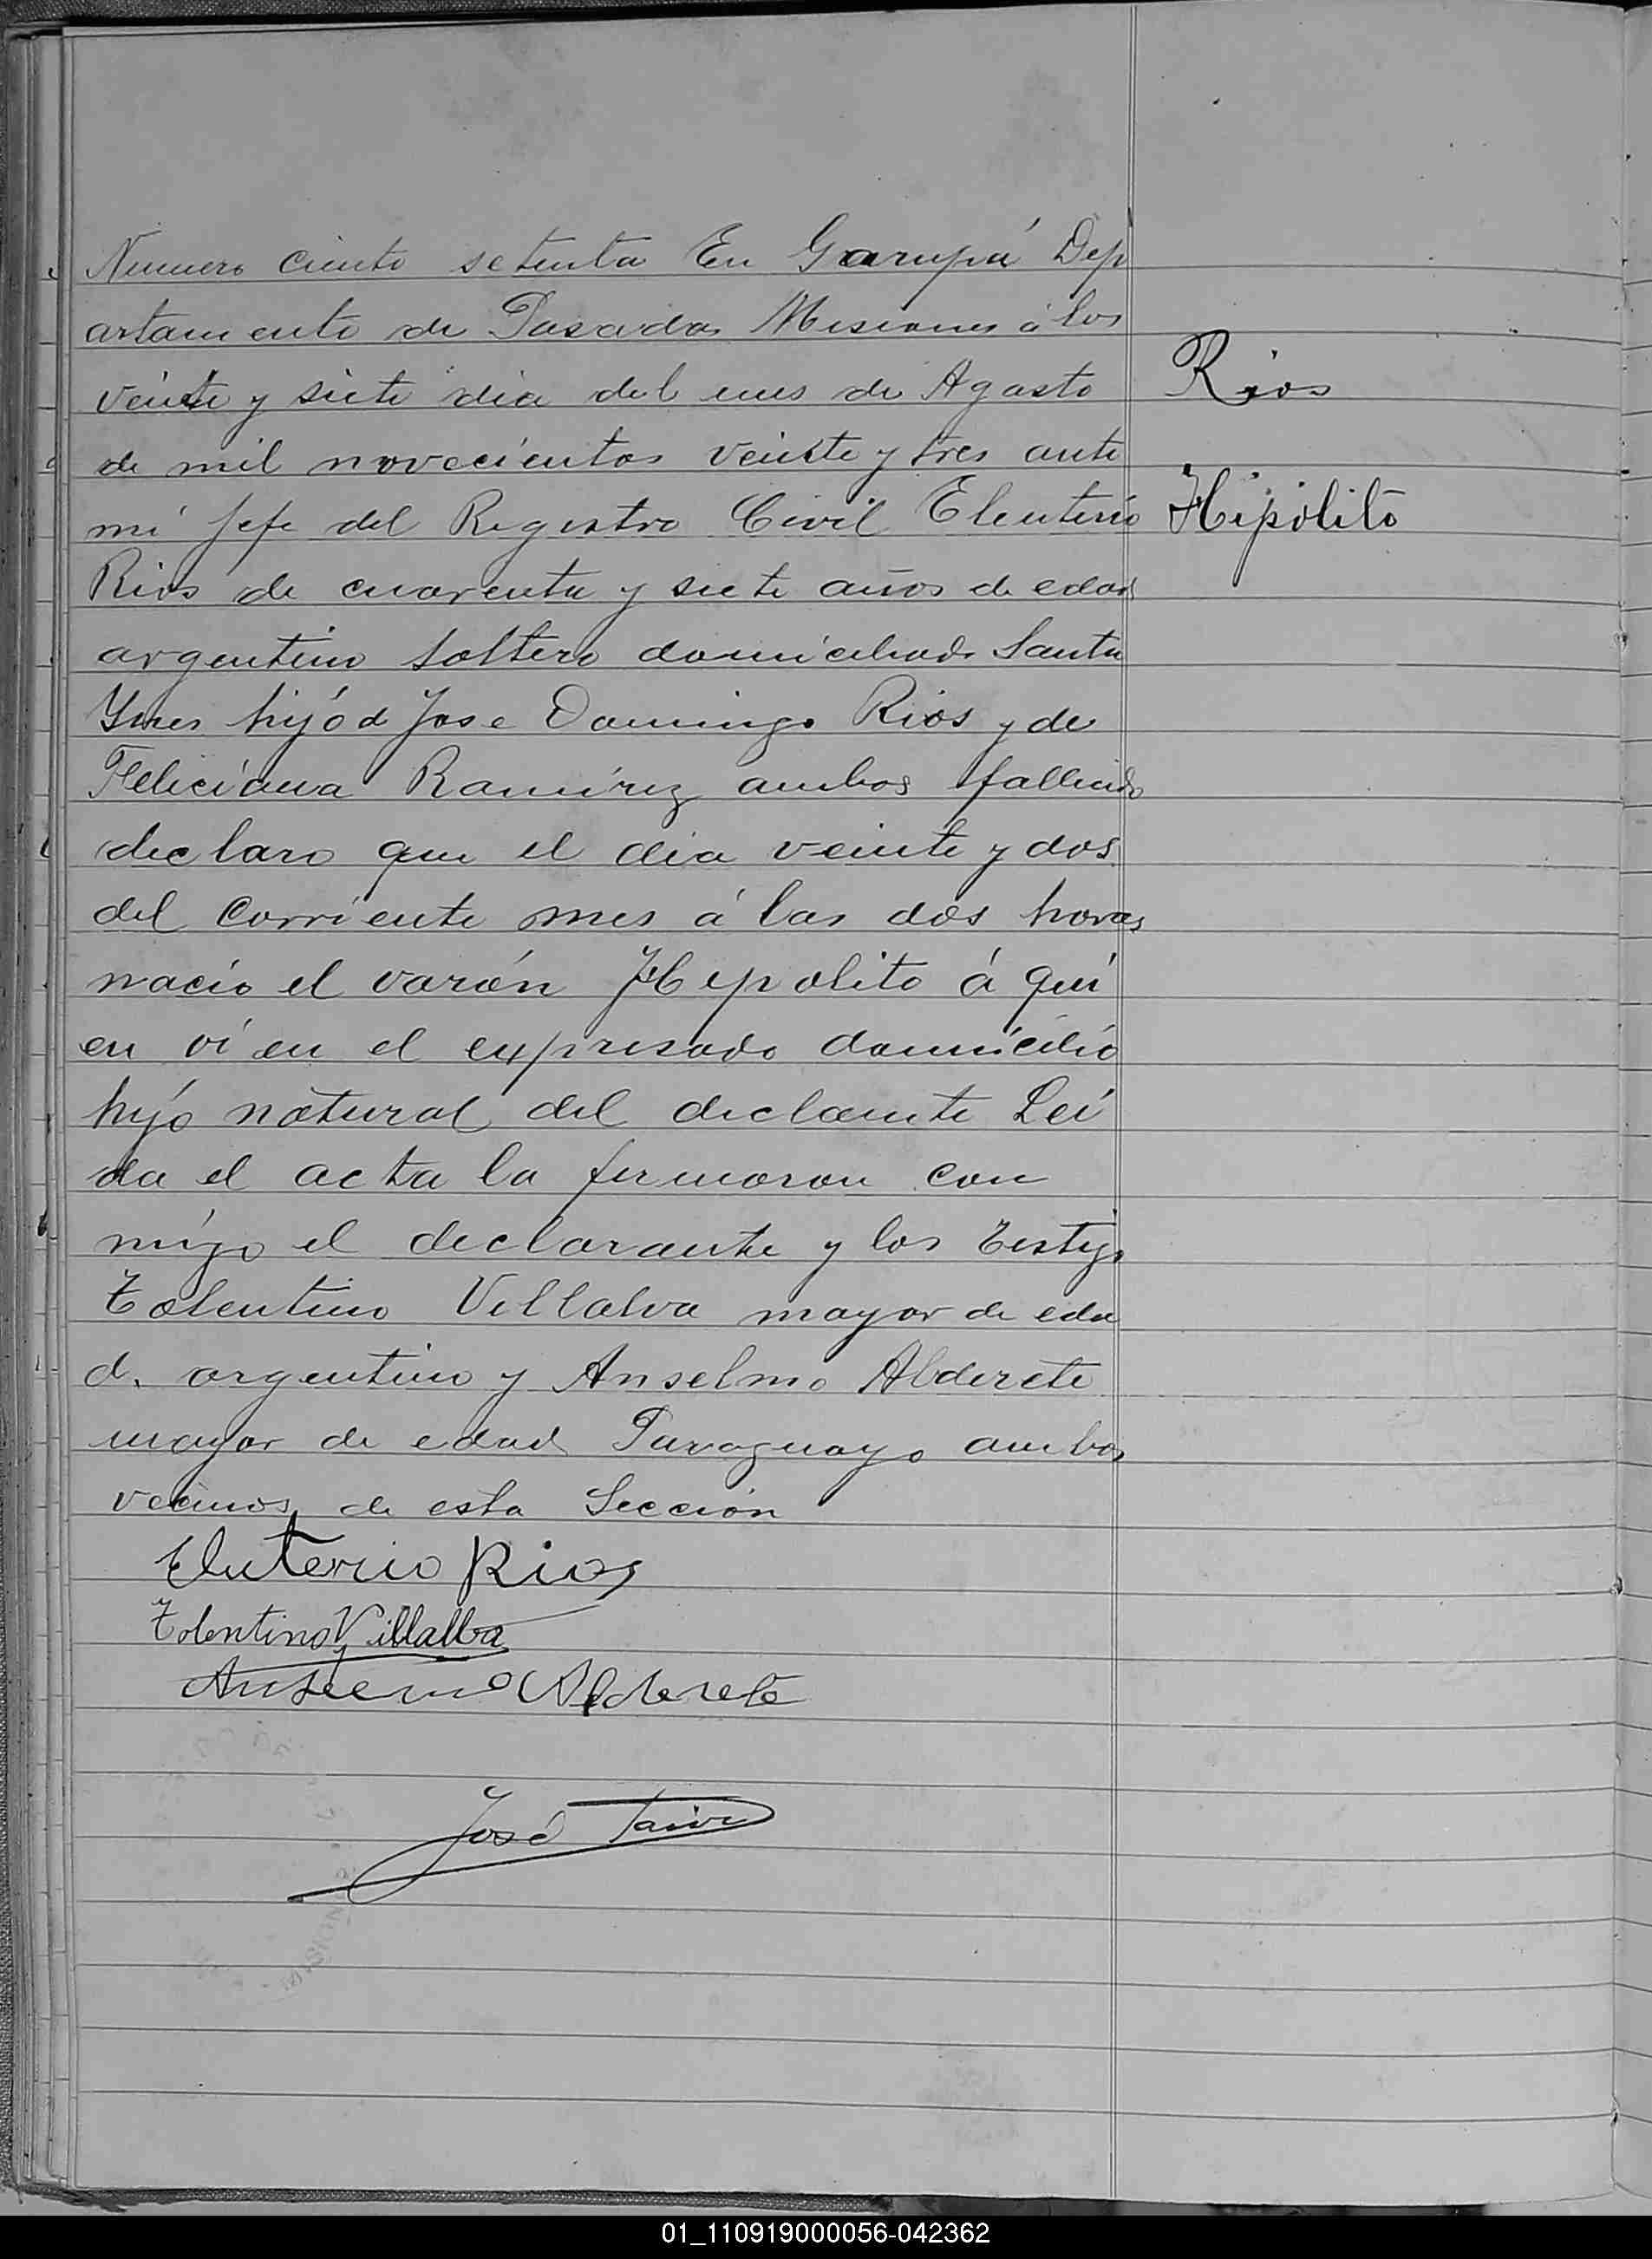 Numero ciento setenta En Garupá Dep
artamento de Posadas Misiones á los
veinte y siete dia del mes de Agosto
de mil novecientos veinte y tres ante
mi Jefe del Registro Civil Eleuterio
Rios de cuarenta y siete años de edad
argentino soltero domiciliado Santa
Ynes hijo d Jose Domingo Rios y de
Feliciana Ramirez ambos fallecido
declaro que el dia veinte y dos
del corriente mes á las dos horas
nacio el varón Hipolito á qui
en vi en el expresado domicilio
hijo natural del declarante Lei
da el acta la firmaron con
migo el declarante y los testigo
Tolentino Villalva mayor de eda
d. argentino y Anselmo Alderete
mayor de edad Paraguayo ambos
vecinos de esta Sección
Eluterio Rios
Tolentino Villalba
Anselmo Alderete
José
Rios
Hipólito
MISIONES
01_110919000056-042362